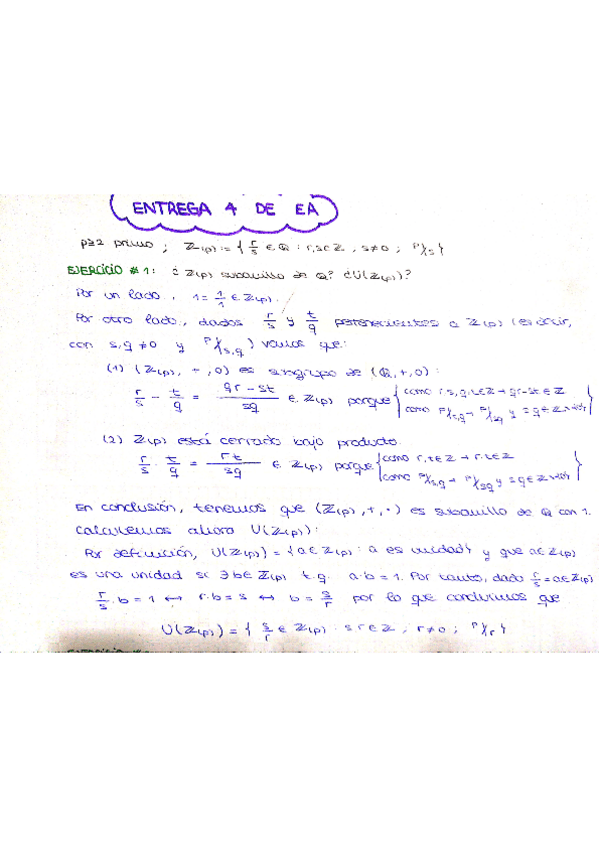 ENTREGA 4 DE EA
p≥2 primo ; ℤ(p) := { r/s ∈ ℚ : r,s∈ℤ , s≠0 ; p∤s }
EJERCICIO #1: ¿ ℤ(p) subanillo de ℚ? ¿U(ℤ(p))?
Por un lado, 1 = 1/1 ∈ ℤ(p).
Por otro lado, dados r/s y t/q pertenecientes a ℤ(p) (es decir,
con s,q ≠0 y p∤s,q) vamos que:
(1) (ℤ(p), +, 0) es subgrupo de (ℚ,+,0):
r/s - t/q = qr-st/sq ∈ ℤ(p) porque { como r,s,q,t∈ℤ → qr-st∈ℤ
como p∤s,q → p∤sq y s·q∈ℤ\{0} }
(2) ℤ(p) está cerrado bajo producto.
r/s · t/q = rt/sq ∈ ℤ(p) porque { como r,t∈ℤ → r·t∈ℤ
como p∤s,q → p∤sq y s·q∈ℤ\{0} }
En conclusión, tenemos que (ℤ(p),+,·) es subanillo de ℚ con 1.
Calculemos ahora U(ℤ(p)):
Por definición, U(ℤ(p)) = {a∈ℤ(p) : a es unidad} y que a∈ℤ(p)
es una unidad si ∃b∈ℤ(p) t.q. a·b = 1. Por tanto, dado r/s = a∈ℤ(p)
r/s · b = 1 ↔ r·b = s ↔ b = s/r por lo que concluimos que
U(ℤ(p)) = { s/r ∈ ℤ(p) : s,r∈ℤ , r≠0 ; p∤r }